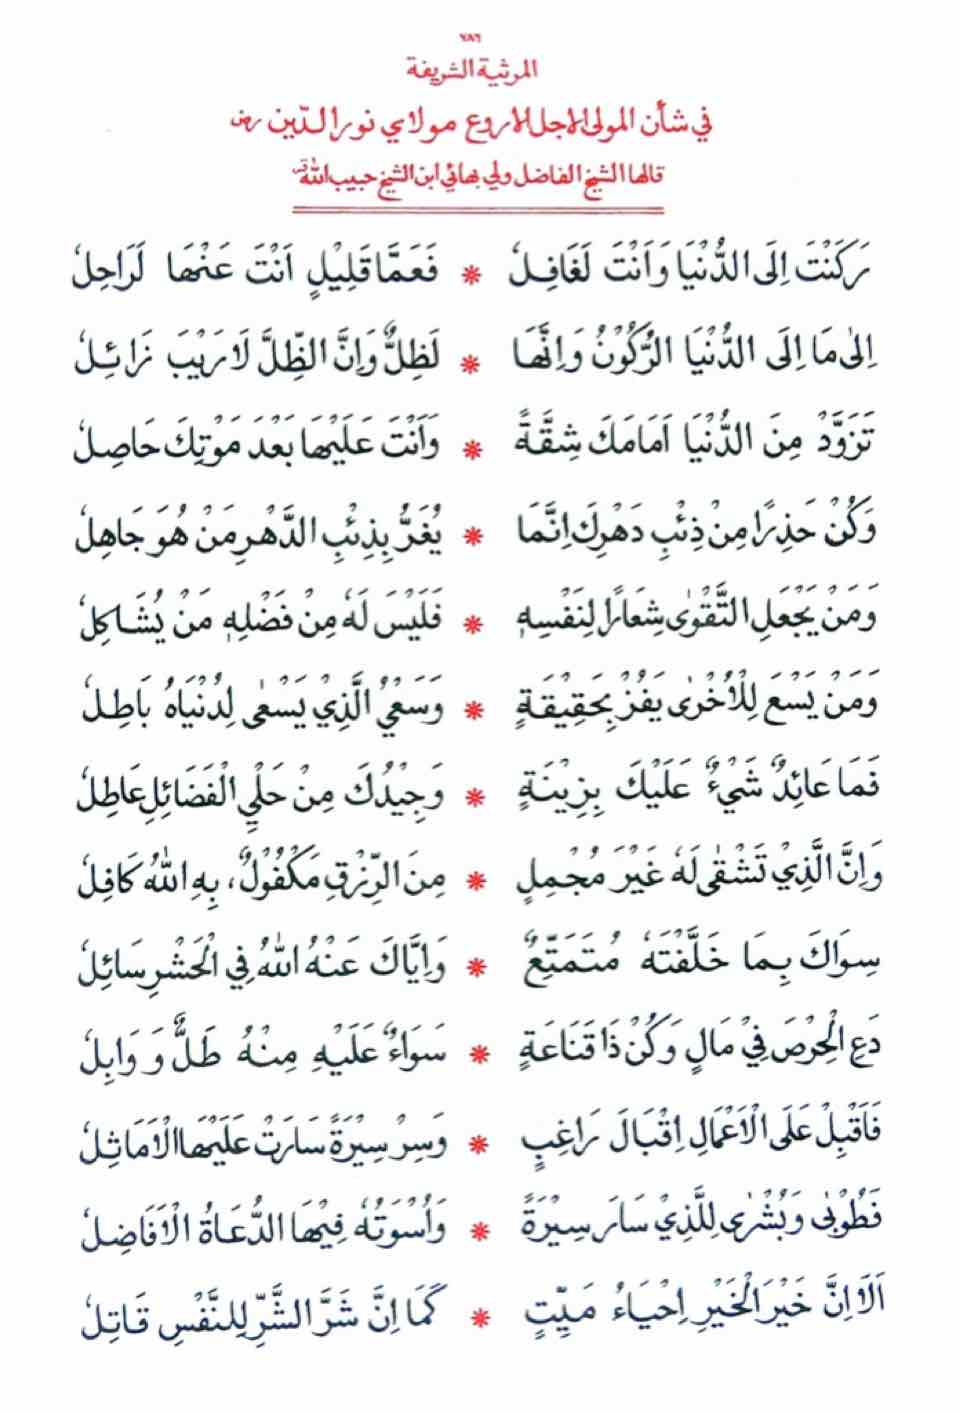 ٧٨٦
المرثية الشريفة
في شأن المولى الاجل الاروع مولاي نور الدّين رض
قالها الشيخ الفاضل ولي بهائي ابن الشيخ حبيب الله قس
رَكَنْتَ اِلَى الدُّنْيَا وَاَنْتَ لَغَافِلٗ * فَعَمَّا قَلِيْلٍ اَنْتَ عَنْهَا لَرَاحِلٗ
اِلىٰ مَا اِلَى الدُّنْيَا الرُّكُوْنُ وَاِنَّهَا * لَظِلٌّ وَاِنَّ الظِّلَّ لَا رَيْبَ زَائِلٗ
تَزَوَّدْ مِنَ الدُّنْيَا اَمَامَكَ شِقَّةً * وَاَنْتَ عَلَيْهَا بَعْدَ مَوْتِكَ حَاصِلٗ
وَكُنْ حَذِرًا مِنْ ذِئْبِ دَهْرِكَ اِنَّمَا * يُغَرُّ بِذِئْبِ الدَّهْرِ مَنْ هُوَ جَاهِلٗ
وَمَنْ يَجْعَلِ التَّقْوٰى شِعَارًا لِنَفْسِهٖ * فَلَيْسَ لَهٗ مِنْ فَضْلِهٖ مَنْ يُشَاكِلٗ
وَمَنْ يَسْعَ لِلْاُخْرٰى يَفُزْ بِحَقِيْقَةٍ * وَسَعْيُ الَّذِيْ يَسْعٰى لِدُنْيَاهُ بَاطِلٗ
فَمَا عَائِدٌ شَيْءٌ عَلَيْكَ بِزِيْنَةٍ * وَجِيْدُكَ مِنْ حَلْيِ الْفَضَائِلِ عَاطِلٗ
وَاِنَّ الَّذِيْ تَشْقٰى لَهٗ غَيْرَ مُجْمِلٍ * مِنَ الرِّزْقِ مَكْفُوْلٌ، بِهِ اللهُ كَافِلٗ
سِوَاكَ بِمَا خَلَّفْتَهٗ مُتَمَتِّعٌ * وَاِيَّاكَ عَنْهُ اللهُ فِي الْحَشْرِ سَائِلٗ
دَعِ الْحِرْصَ فِيْ مَالٍ وَكُنْ ذَا قَنَاعَةٍ * سَوَاءٌ عَلَيْهِ مِنْهُ طَلٌّ وَ وَابِلٗ
فَاَقْبِلْ عَلَى الْاَعْمَالِ اِقْبَالَ رَاغِبٍ * وَسِرْ سِيْرَةً سَارَتْ عَلَيْهَا الْاَمَاثِلٗ
فَطُوْبٰى وَبُشْرٰى لِلَّذِيْ سَارَ سِيْرَةً * وَاُسْوَتُهٗ فِيْهَا الدُّعَاةُ الْاَفَاضِلٗ
اَلَا اِنَّ خَيْرَ الْخَيْرِ اِحْيَاءُ مَيِّتٍ * كَمَا اِنَّ شَرَّ الشَّرِّ لِلنَّفْسِ قَاتِلٗ